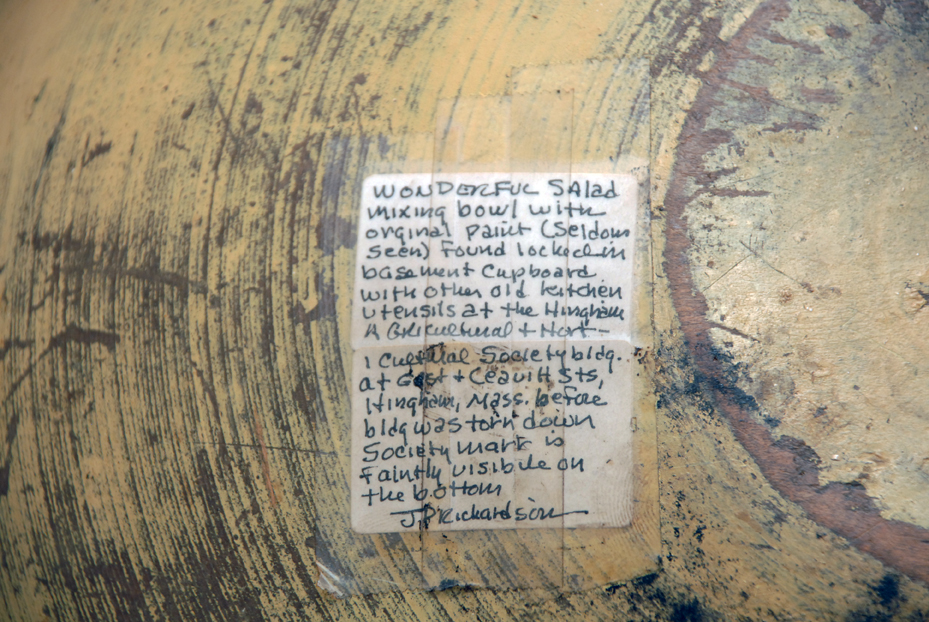 WONDERFUL Salad
mixing bowl with
orginal paint (Seldom
Seen) Found locked in
basement Cupboard
with other old kitchen
utensils at the Hingham
Agricultural + Hort-
icultural Society bldg.
at East + Leavitt Sts,
Hingham, Mass. before
bldg was torn down
Society mark is
faintly visible on
the bottom
J P Richardson